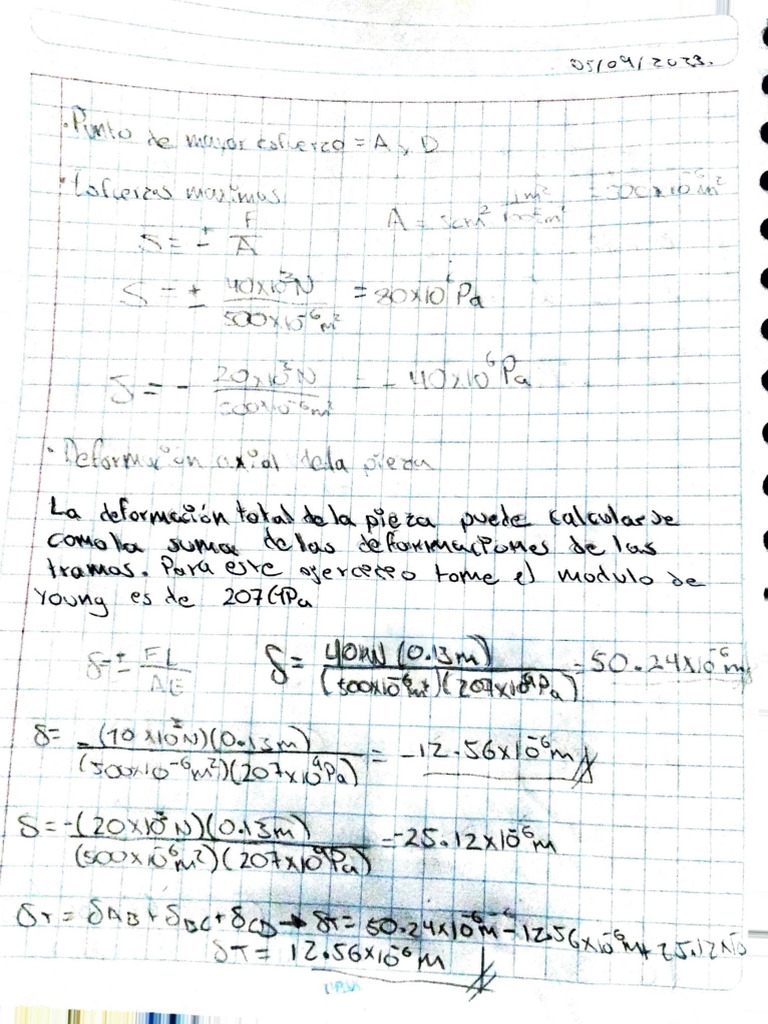 05/09/2023.
· Punto de mayor esfuerzo = A y D
· Esfuerzos maximos
S = ± F/A
A = 5cm² 1m² = 500x10⁻⁶m²
S = ± 40x10³N / 500x10⁻⁶m² = 80x10⁶Pa
S = - 20x10³N / 500x10⁻⁶m² = - 40x10⁶Pa
· Deformación axial de la pieza
La deformación total de la pieza puede calcularse
como la suma de las deformaciones de las
tramos. Para este ejerceceo tome el modulo de
Young es de 207GPa
δ=± FL/AE δ= 40kN(0.13m) / (500x10⁻⁶m²)(207x10⁹Pa) = 50.24x10⁻⁶m
δ= -(10x10³N)(0.13m) / (500x10⁻⁶m²)(207x10⁹Pa) = -12.56x10⁻⁶m
δ= -(20x10³N)(0.13m) / (500x10⁻⁶m²)(207x10⁹Pa) = -25.12x10⁻⁶m
δT = δAB + δBC + δCD → δT = 50.24x10⁻⁶m - 12.56x10⁻⁶m + 25.12x10
δT = 12.56x10⁻⁶m